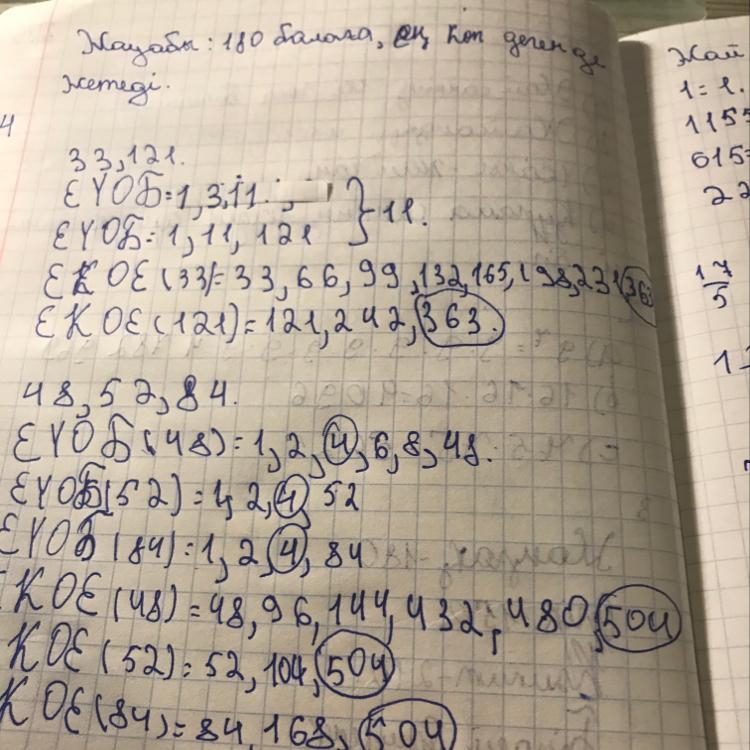 Жауабы: 180 балаға, ең көп дегенде
жетеді.
4
33, 121.
ЕҮОБ = 1, 3, 11.
ЕҮОБ = 1, 11, 121
} 11.
ЕКОЕ (33) = 33, 66, 99, 132, 165, 198, 231, 363
ЕКОЕ (121) = 121, 242, 363.
48, 52, 84.
ЕҮОБ (48) = 1, 2, 4, 6, 8, 48.
ЕҮОБ (52) = 1, 2, 4, 52
ЕҮОБ (84) = 1, 2, 4, 84
ЕКОЕ (48) = 48, 96, 144, 432, 480, 504
КОЕ (52) = 52, 104, 504
КОЕ (84) = 84, 168, 504
Жай
1 = 1.
1155
615 =
22
17
5
1